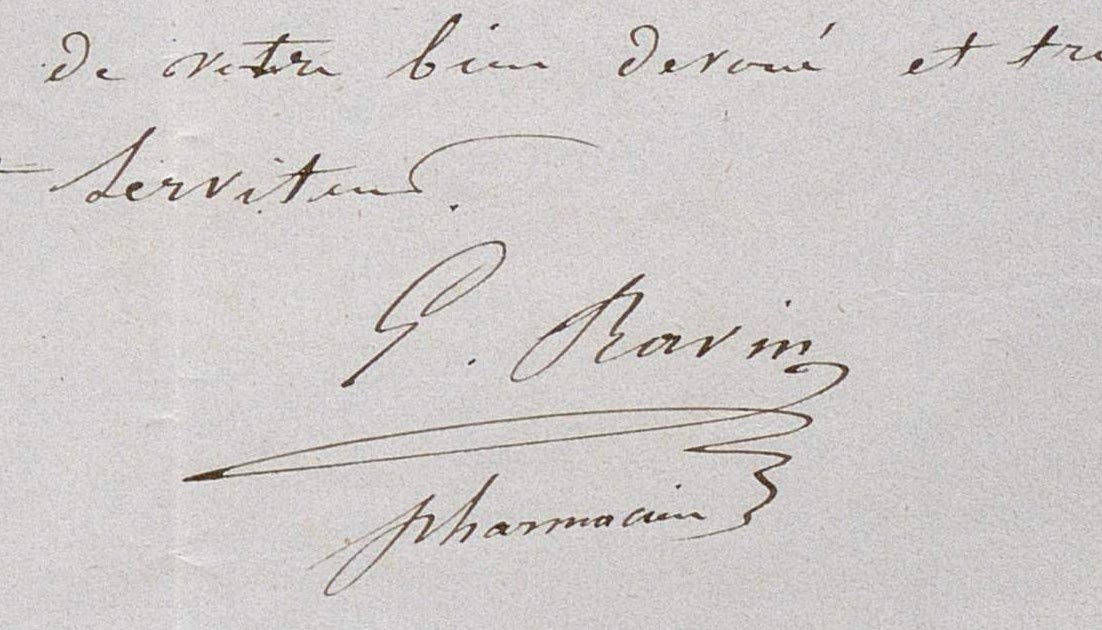 de votre bien devoué et tre
serviteur.
G. Ravin
pharmacien